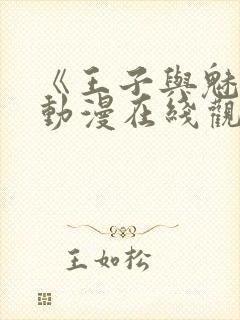 《王子與魅
動漫在綫觀
王如松